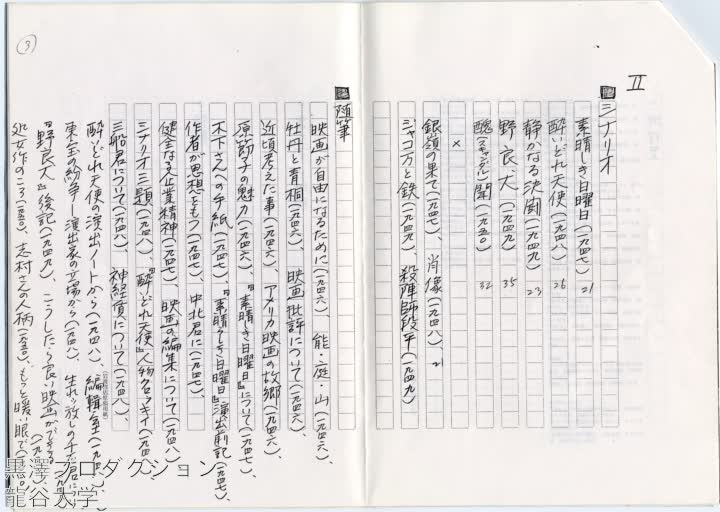 Ⅱ
シナリオ
素晴しき日曜日(一九四七) 21
酔いどれ天使(一九四八) 26
静かなる決闘(一九四九) 23
野良犬(一九四九) 35
醜(スキャンダル)聞(一九五〇) 32
×
銀嶺の果て(一九四七)、肖像(一九四八)、21
ジャコ万と鉄(一九四九)、殺陣師段平(一九四九)
随筆
映画が自由になるために(一九四六)、能・庭・山(一九四六)、
牡丹と青桐(一九四六)、映画批評について(一九四六)、
近頃考えた事(一九四六)、アメリカ映画の故郷(一九四六)、
原節子の魅力(一九四六)、『素晴しき日曜日』について(一九四七)、
木下さんへの手紙(一九四七)、『素晴らしき日曜日』演出前記(一九四七)、
作者が思想をもつ(一九四七)、中北君に(一九四七)、
健全なる企業精神(一九四七)、映画の編集について(一九四八)
シナリオ三題(一九四八)、『酔いどれ天使』人物クロッキイ(一九四八)、
三船君について(一九四八)、神経質について(一九四八)、
酔いどれ天使の演出ノートから(一九四八)、編輯室(一九四八)、
東宝の紛争―演出家の立場から(一九四八)、生れ放しの千石君に
『野良犬』後記(一九四九)、こうしたら良い映画ができる(一九四九)、
処女作のころ(一九五〇)、志村さんの人柄(一九五〇)、もっと暖い眼で(一九五〇)。
3
黒澤プロダクション
龍谷大学